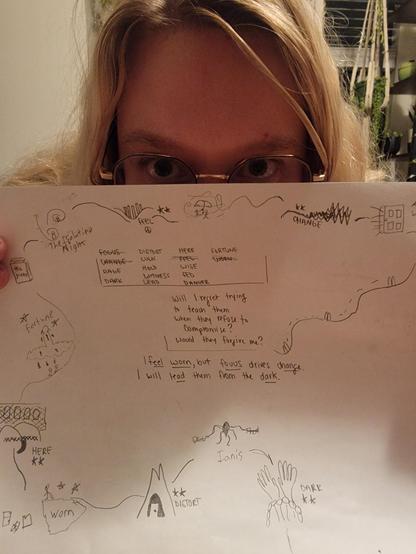 FEEL
**
**
CHANGE
The Melting
Night
FOCUS DISTORT HERE FORTUNE
CHANGE FEEL WORN
RAGE HOLD WISE
WITNESS RED
DARK LEAD DANCER
Will I regret trying
to teach them
when they refuse to
compromise?
Would they forgive me?
I feel worn, but focus drives change.
I will lead them from the dark.
Fortune
HERE
**
Worn
**
DISTORT
Ianis
DARK
**